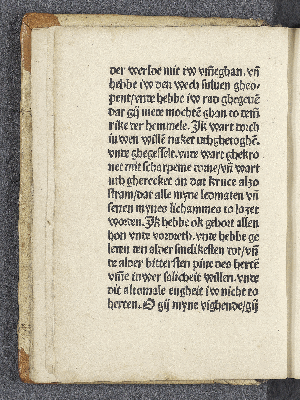 der werlde mit iw vm̄eghan. vn̄
hebbe iw den wech suluen gheo-
pent/vnte hebbe iw rad ghegeuē
dar gij mete mochtē ghan to dem̄
rike der hemmele. Jk wart dorch
iuwen willē naket vthgheroghē.
vnte ghegesselt. vnte wart ghekro
net mit scharpeme dorne/vn̄ wart
uth gherecket an dat kruce alzo
stram/dat alle myne ledmaten vn̄
senen mynes lichammes to lozet
worden. Jk hebbe ok gehort allen
hon vnte vordreth. vnte hebbe ge
leden den alder smelikesten dot/vn̄
te alder bittersten pine des hertē
vm̄e iuwer salicheit willen. vnte
dit altomale engheit iw nicht to
herten. O gij myne vighende/gij